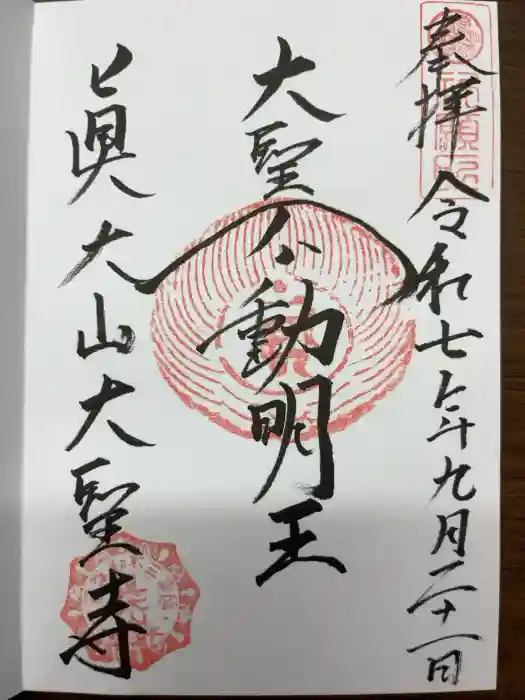 奉拝 令和七年九月二十一日
大聖不動明王
眞大山大聖寺